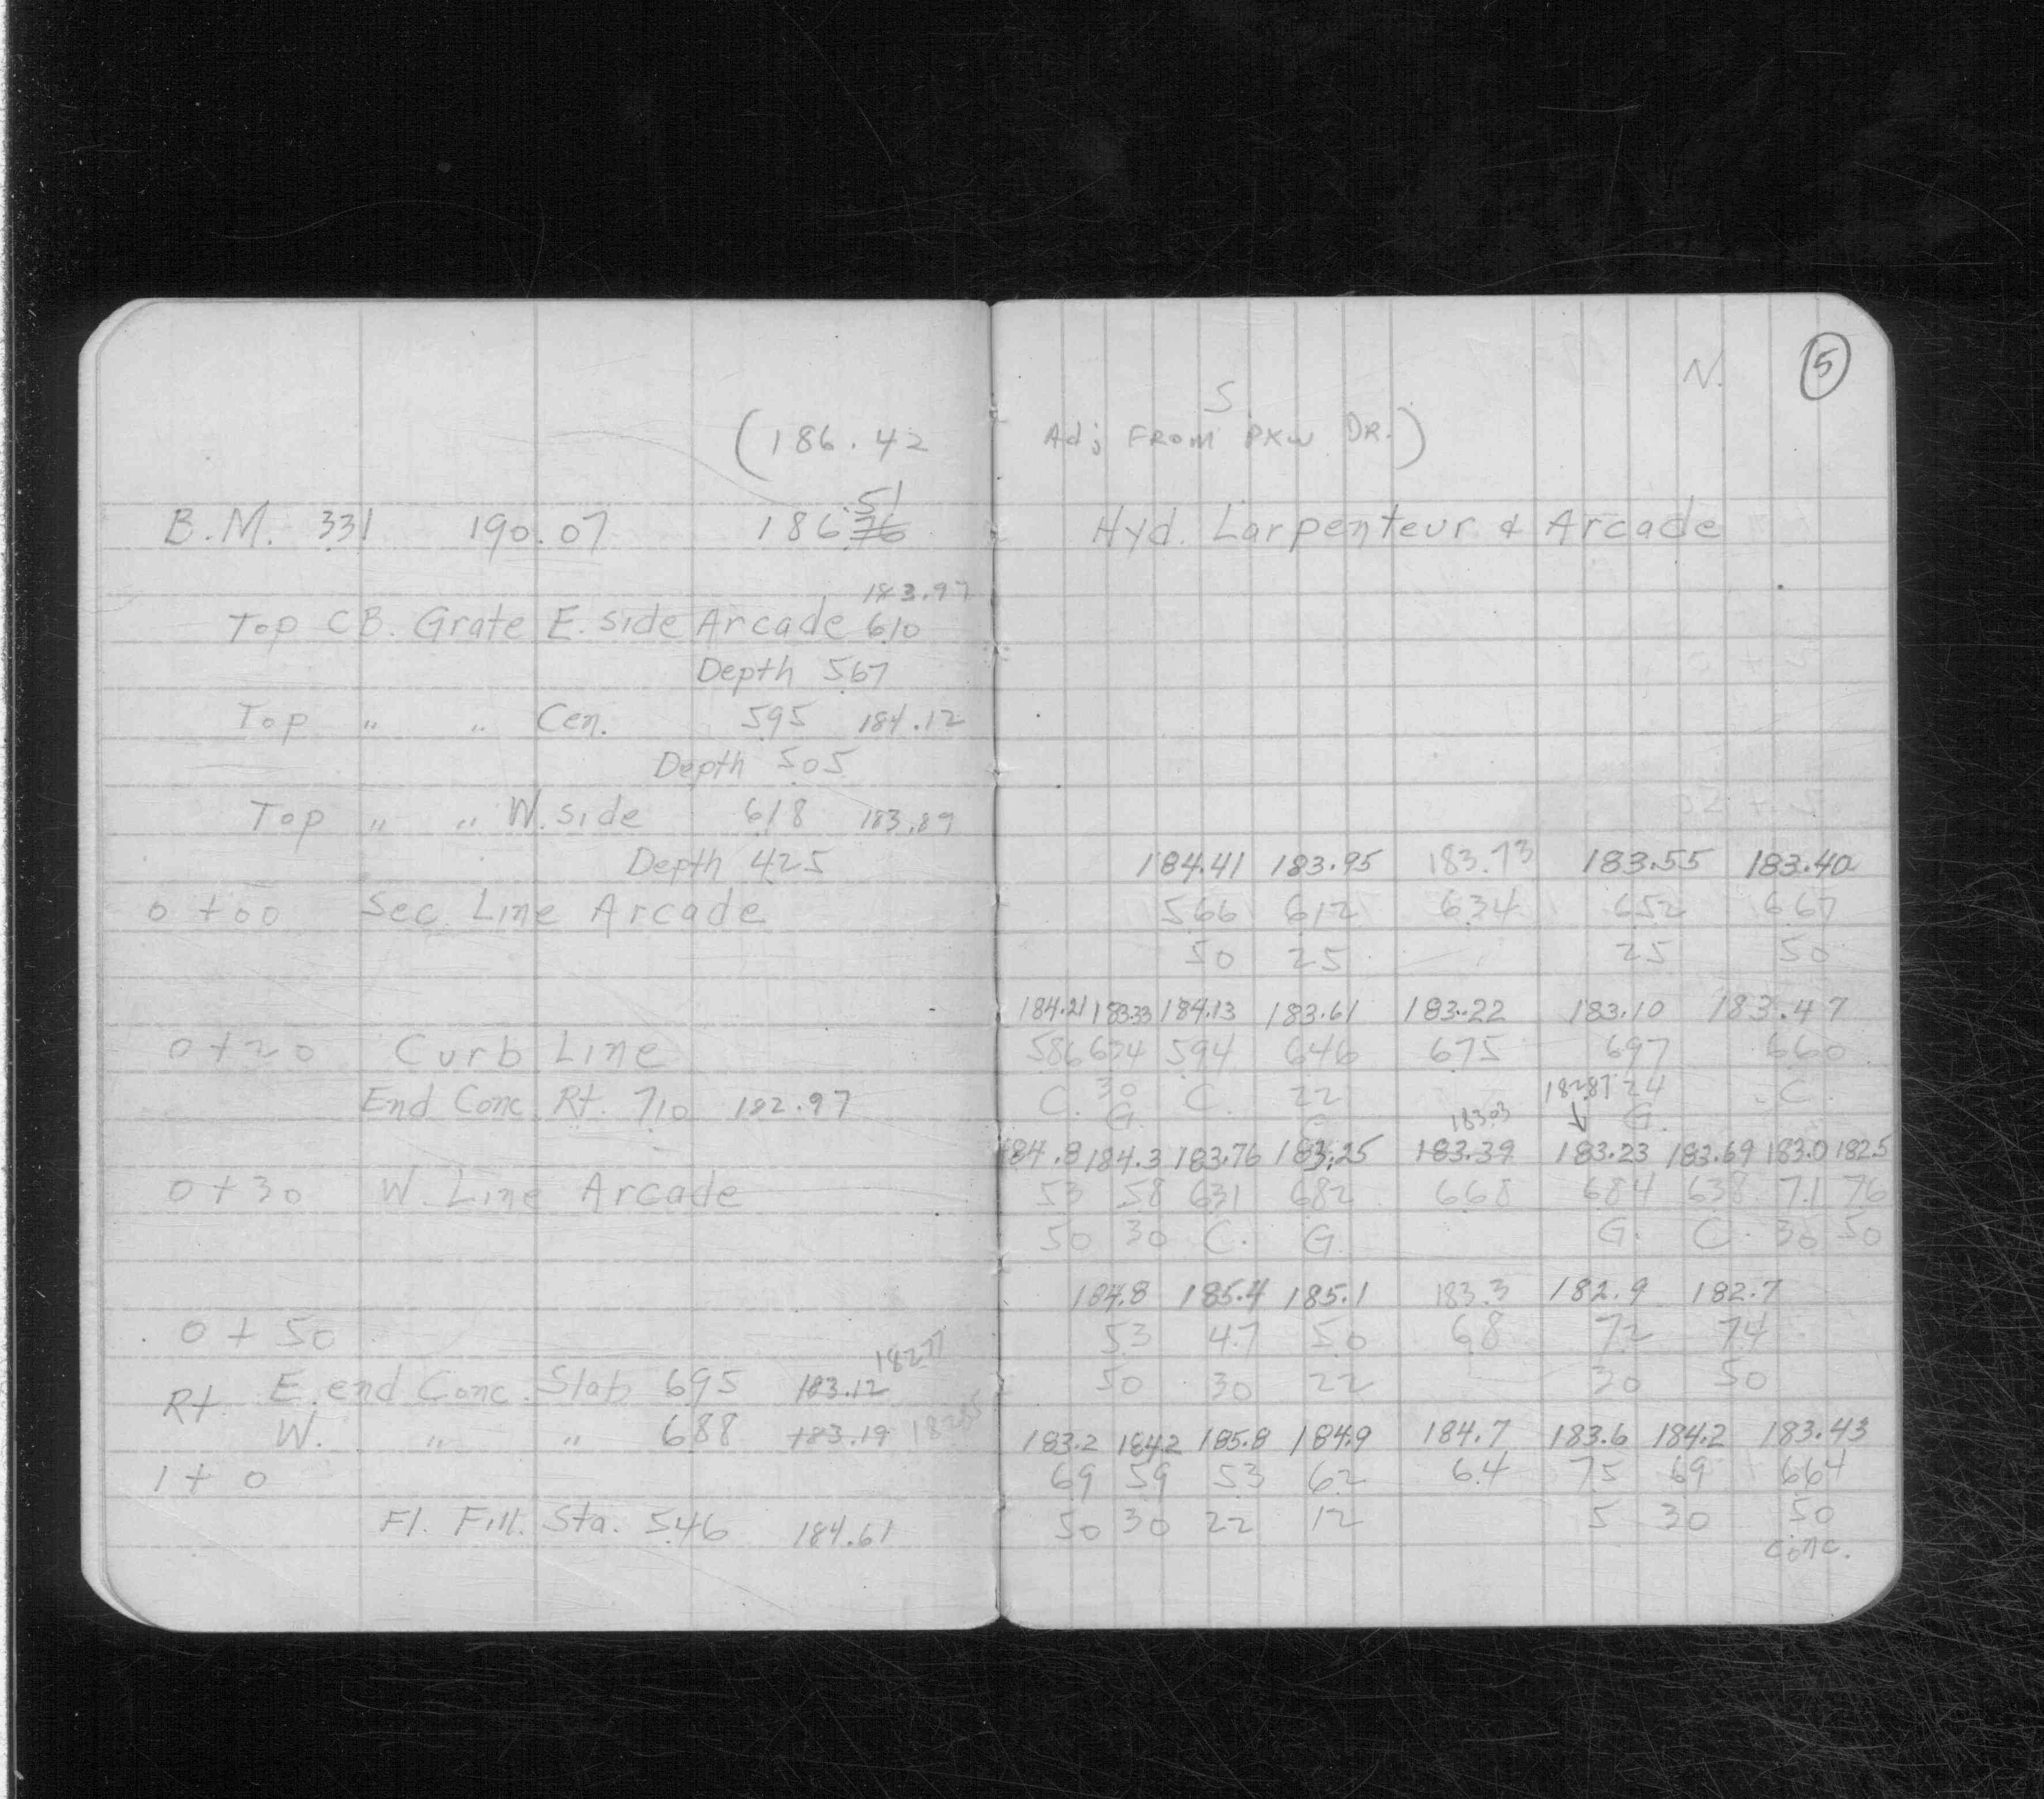 5
N.
S
(186.42 Adj FROM PKW DR.)
51
B.M. 331 190.07 186.76 Hyd. Larpenteur & Arcade
183.97
Top CB. Grate E. side Arcade 610
Depth 567
Top " " Cen. 595 184.12
Depth 505
Top " " W. side 618 183.89
Depth 425 184.41 183.95 183.73 183.55 183.40
0+00 Sec. Line Arcade 566 612 634 652 667
50 25 25 50
184.21 183.33 184.13 183.61 183.22 183.10 183.47
0+20 Curb Line 586 674 594 646 675 697 660
End Conc. Rt. 710 182.97 C. 30 C. 22 182.87 24 C.
G. G 183.03 G.
184.8 184.3 183.76 183.25 183.39 183.23 183.69 183.0 182.5
0+30 W. Line Arcade 53 58 631 682 668 684 638 7.1 76
50 30 C. G. G. C. 30 50
184.8 185.4 185.1 183.3 182.9 182.7
0+50 53 4.7 50 68 72 74
182.77
Rt. E. end Conc. Slab 695 183.12 50 30 22 30 50
W. " " 688 183.19 183.2 184.2 185.8 184.9 184.7 183.6 184.2 183.43
1+0 69 59 53 62 6.4 75 69 664
Fl. Fill. Sta. 546 184.61 50 30 22 12 5 30 50
conc.